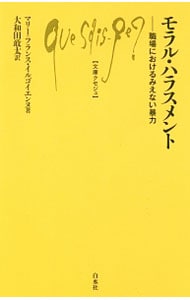 モラル・ハラスメント
——職場におけるみえない暴力
マリー=フランス・イルゴイエンヌ著
大和田敢太訳
que sais-je?
【文庫クセジュ】
白水社